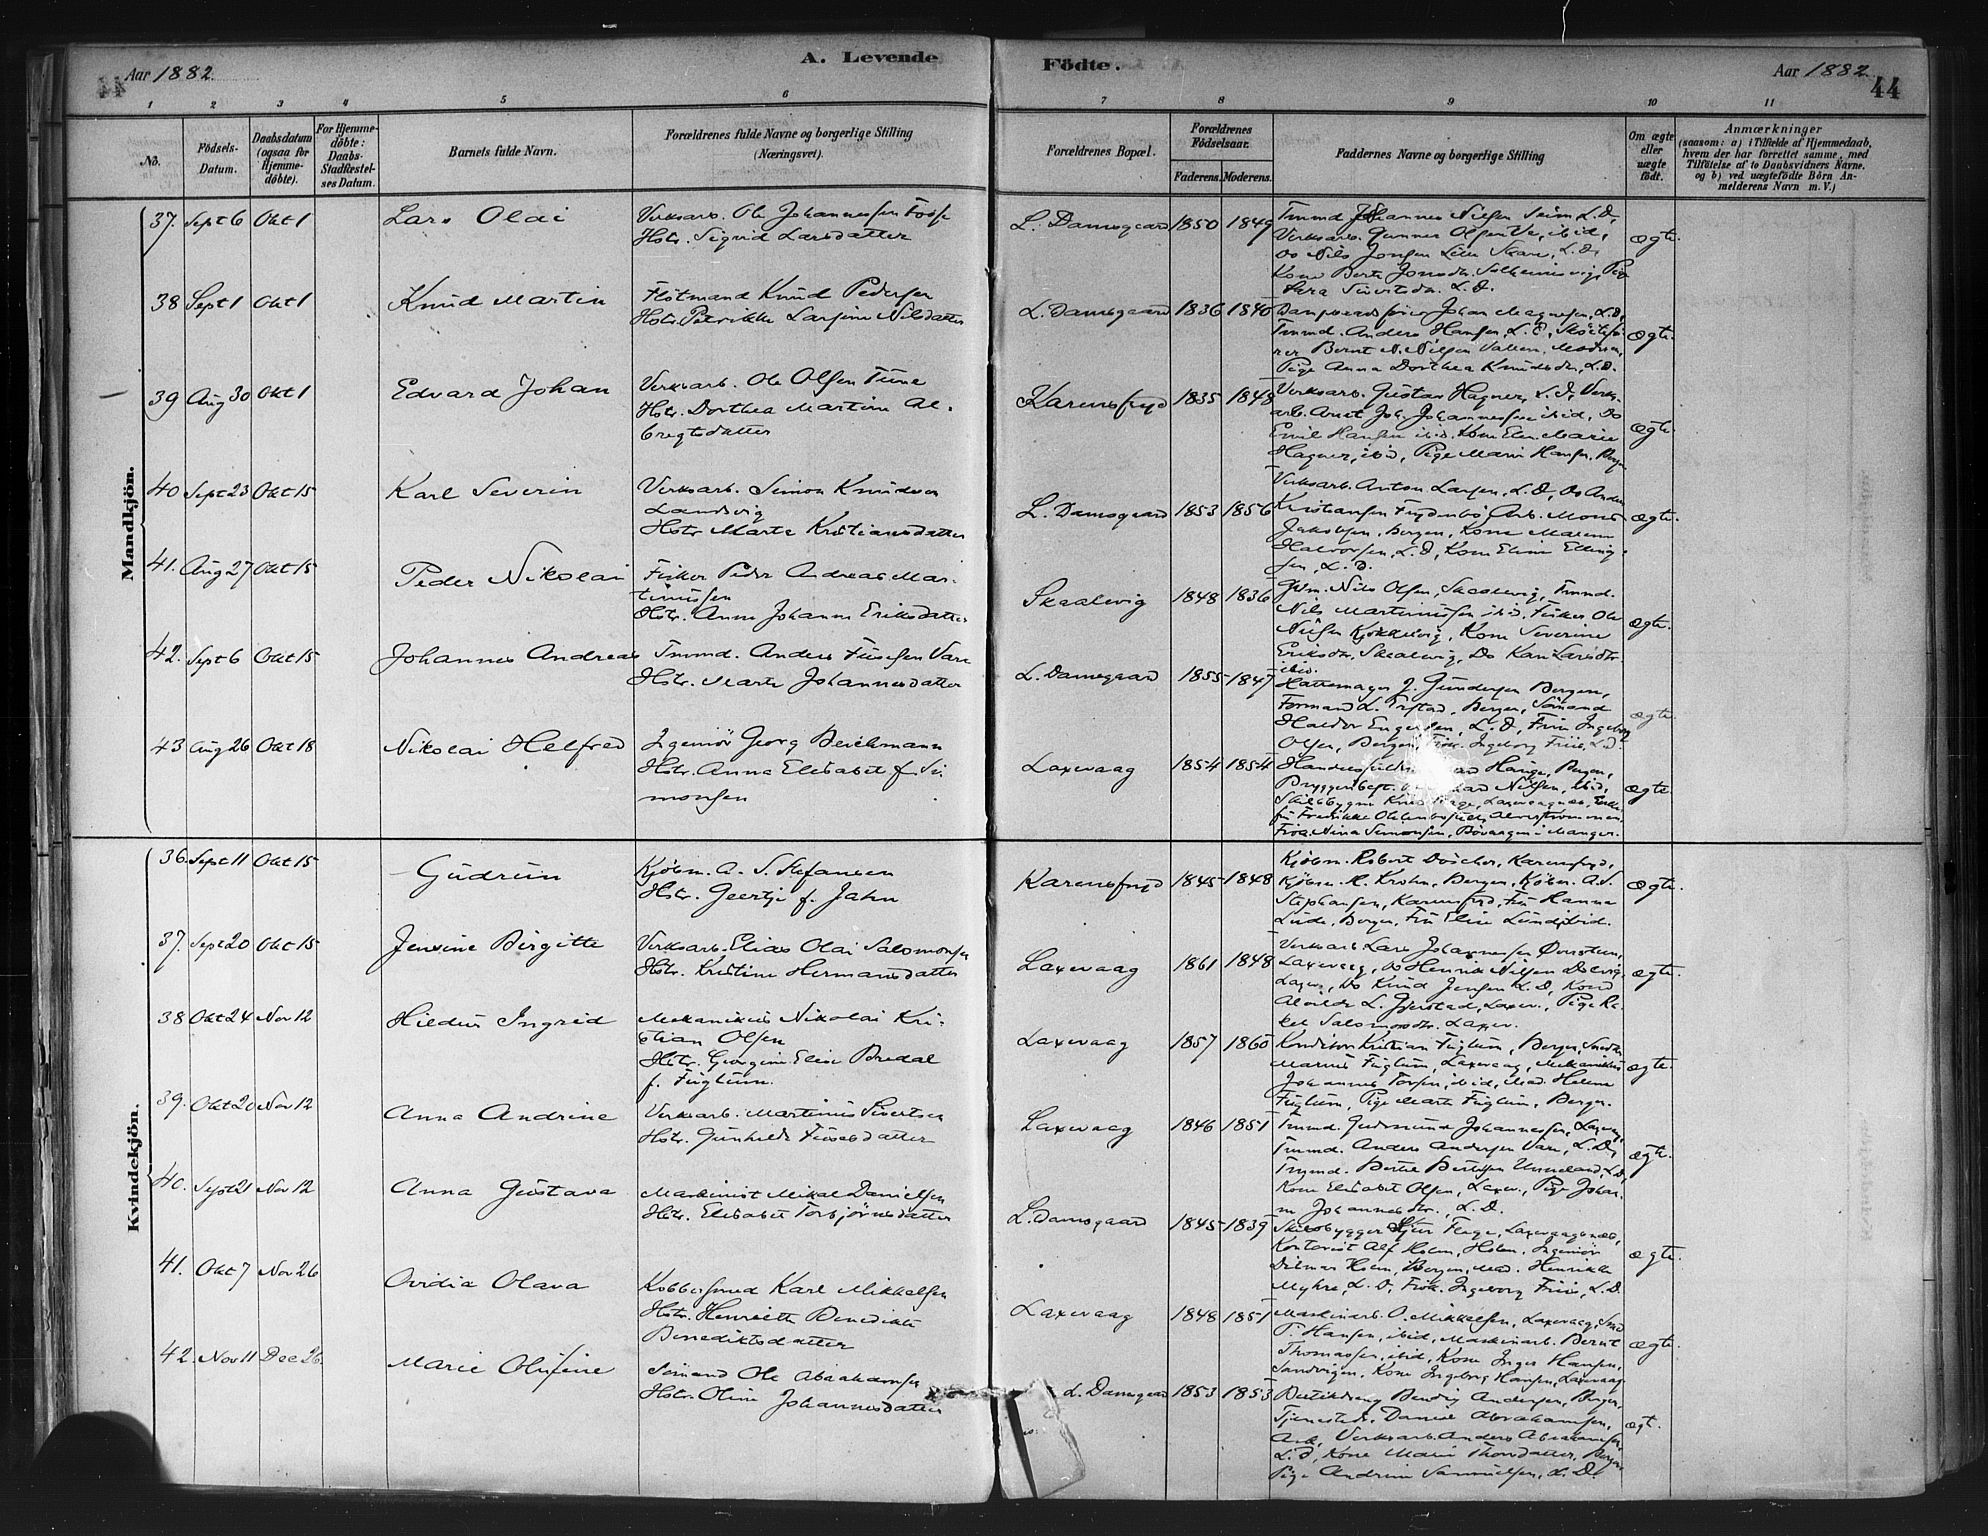 Aar 1882.
A. Levende Födte.
Aar 1882.
44
1 2 3 4 5 6 7 8 9 10 11
No.
Födsels-Datum.
Daabsdatum (ogsaa for Hjemme-döbte).
For Hjemme-döbte: Daabs-Stadfæstel-ses Datum.
Barnets fulde Navn.
Forældrenes fulde Navne og borgerlige Stilling (Næringsvei).
Forældrenes Bopæl.
Forældrenes Födselsaar.
Faderens. Moderens.
Faddernes Navne og borgerlige Stilling
Om ægte eller uægte födt.
Anmærkninger
(saasom: a) i Tilfælde af Hjemmedaab,
hvem der har forrettet samme, med
Tilföielse af to Daabsvidners Navne,
og b) ved uægtefödte Börn An-
melderens Navn m. V.)
Mandkjön.
37. Sept 6 Okt 1 Lars Olai
Verksarb. Ole Johannessen Fosse
Hstr. Sigrid Larsdatter
L. Damsgaard 1850 1849
Trmmd Johannes Nilsen Seim L.D,
Verksarb. Gunner Olsen ibid,
Do Nils Jonsen L.D,
Kone Berte Jonsdtr. Solheimsvig, Pige
Sivertsdtr. L.D.
ægte.
38 Sept 1 Okt 1 Knud Martin
Flötmand Knud Pedersen
Hstr. Petrikke Larsine Nilsdatter
L. Damsgaard 1836 1840
Johan Magnesen, L.D,
Trmmd. Anders Hansen, L.D,
Bernt N. Nilsen
Pige Anna Dorthea Knudsdtr, L.D.
ægte.
39 Aug 30 Okt 1 Edvard Johan
Verksarb. Ole Olsen Tune
Hstr. Dorthea Martine Al-
bregtsdatter
Karensfryd 1835 1848
Verksarb. Gustav Hagner, L.D, Verks-
arb. Joh. Johannessen ibid, Do
Emil Hansen ibid. Kone Elen Marie
Hagner, ibid, Pige Marie Hansen, Bergen
ægte.
40 Sept 23 Okt 15 Karl Severin
Verksarb. Simon Knudsen
Landsvig
Hstr Marte Kristiansdatter
L. Damsgaard 1853 1856
Verksarb. Anton Larsen, L.D, Do Anders
Kristiansen Frydenbø, Arb. Mons
Jakobsen, Bergen, Kone Maren
Halvorsen, L.D, Kone Eline Elling-
sen, L.D.
ægte.
41. Aug 27 Okt 15 Peder Nikolai
Fisker Peder Andreas Mar-
tinussen
Hstr. Anne Johanne Eriksdatter
Skaalevig 1848 1836
Gdm. Nils Olsen, Skaalevig, Trmmd.
Nils Martinussen ibid, Fisker Ole
Nilsen Kjøkkelvig, Kone Severine
Eriksdtr. Skaalevig, Do Kari Larsdtr.
ibid.
ægte.
42. Sept 6 Okt 15 Johannes Andreas
Trmmd. Anders Fusesen Vare
Hstr. Marte Johannesdatter
L. Damsgaard 1855 1847
Hattemager J. Gundersen Bergen,
Formand L. Bergen, Sömand
Halder L.D, Frue Ingeborg
Olsen, Bergen, Frøk. Ingeborg Friis, L.D.
ægte.
43 Aug 26 Okt 18 Nikolai Helfred
Ingeniör Georg Beichmann
Hstr. Anna Elisabet f. Si-
monsen
Laxevaag 1854 1854
Hauge, Bergen,
Nilsen, ibid,
Skibsbygm. Laxevaagnæs.
Frøk. Nina Simonsen, Bövaagen i Manger.
ægte
Kvindekjön.
36. Sept 11 Okt 15 Gudrun
Kjöbm. A. S. Stefansen
Hstr. Geertje f. Jahn
Karensfryd 1845 1848
Kjöbm. Robert Döscher, Karensfryd,
Kjöbm. H. Krohn, Bergen, Kjöbm. A.S.
Stephansen, Karensfryd, Fru Hanna
Lude, Bergen, Fru Elise Lund, ibid.
ægte.
37. Sept 20 Okt 15 Jensine Birgitte
Verksarb. Elias Olai Salomonsen
Hstr. Kristine Hermansdatter
Laxevaag 1861 1848
Verksarb. Lars Johannesen
Laxevaag, Do Henrik Nilsen Dolvig,
Laxev, Do Knud Jensen L.D, Kone
Alvilde L. Gjerstad, Laxev., Pige Ra-
kel Salomonsdtr. Laxev.
ægte.
38 Okt 24 Nov 12 Hildur Ingrid
Mekanikus Nikolai Kri-
stian Olsen
Hstr. Georgine Elise Bredal
f. Fuglum.
Laxevaag 1857 1860
Konditor Kristian Fuglum, Bergen,
Marius Fuglum, Laxevaag, Mekanikus
Johannes Torsen, ibid, Mad. Helene
Fuglum, Pige Marte Fuglum, Bergen.
ægte.
39. Okt 20 Nov 12 Anna Andrine
Verksarb. Martinus Sivertsen
Hstr. Gunhilde Fusesdatter
Laxevaag 1846 1851
Trmmd. Gudmund Johannessen, Laxevaag,
Trmmd. Anders Andersen Vare, L.D,
Trmmd. Bertel Bertelsen L.D,
Kone Elisabet Olsen, Laxev., Pige Johan-
ne Johannesdtr., L.D.
ægte.
40. Sept 21 Nov 12 Anna Gustava
Maskinist Mikal Danielsen
Hstr. Elisabet Torbjörnsdatter
L. Damsgaard 1845 1839
Skibsbygger Flage, Laxevaagsnæs,
Kontorist Alf Holm, Ingeniör
Ditmar Bergen, Mad. Henrikke
Myhre, L.D, Frøk. Ingeborg Friis, L.D.
ægte.
41. Okt 7 Nov 26 Ovidia Olava
Kobbersmed Karl Mikkelsen
Hstr. Henriette Benedikte
Benediktsdatter
Laxevaag 1848 1851
Maskinarb. O. Mikkelsen, Laxevaag, Smed
P. Hansen, ibid, Maskinarb. Bernt
Thomassen, ibid, Kone Inger Hansen,
Sandvigen, Kone Ingeborg Hansen, Laxevaag
ægte.
42. Nov 11 Dec 26. Marie Olufine
Sömand Ole Abrahamsen
Hstr. Oline Johannesdatter
L. Damsgaard 1853 1853
Butikdreng Bendig Andersen, Bergen,
Tjenestedr. Daniel Abrahamsen,
Ask, Verksarb. Anders Abrahamsen,
L.D, Kone Marie Thorsdatter, Bergen,
Pige Andrine Samuelsen, L.D.
ægt.